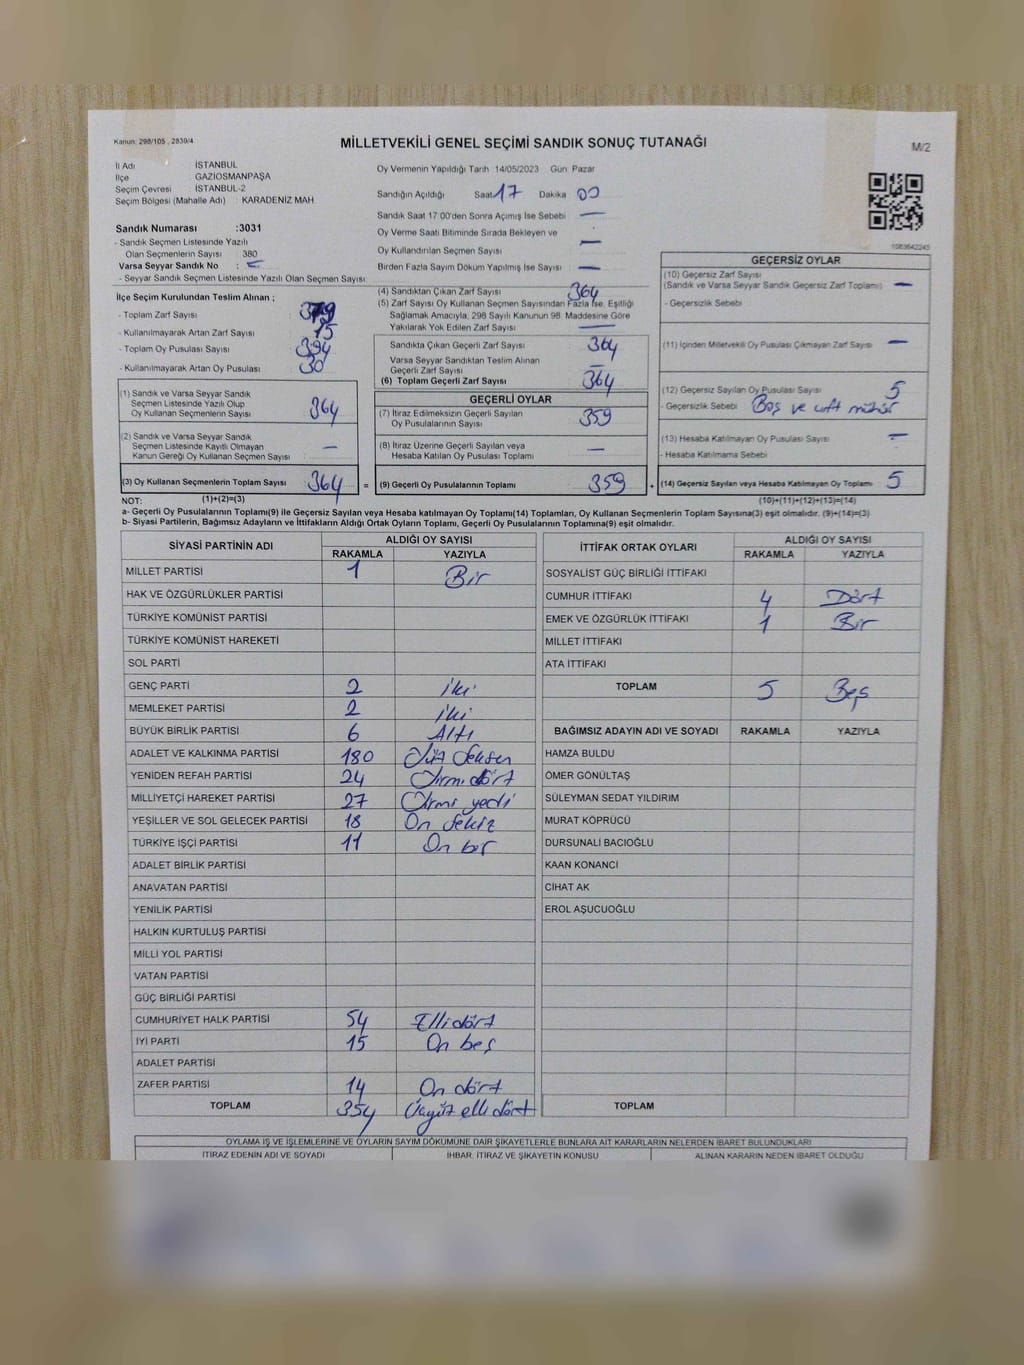 Kanun; 298/105 , 2839/4
MİLLETVEKİLİ GENEL SEÇİMİ SANDIK SONUÇ TUTANAĞI
M/2
İl Adı : İSTANBUL
İlçe : GAZİOSMANPAŞA
Seçim Çevresi : İSTANBUL-2
Seçim Bölgesi (Mahalle Adı) : KARADENİZ MAH.
Oy Vermenin Yapıldığı Tarih :14/05/2023 Gün: Pazar
Sandığın Açıldığı Saat 17 Dakika 00
Sandık Saat 17:00'den Sonra Açımış İse Sebebi : —
Oy Verme Saati Bitiminde Sırada Bekleyen ve
Oy Kullandırılan Seçmen Sayısı : —
Birden Fazla Sayım Döküm Yapılmış İse Sayısı : —
Sandık Numarası :3031
- Sandık Seçmen Listesinde Yazılı
Olan Seçmenlerin Sayısı : 380
Varsa Seyyar Sandık No : —
- Seyyar Sandık Seçmen Listesinde Yazılı Olan Seçmen Sayısı:
1083642245
İlçe Seçim Kurulundan Teslim Alınan ;
- Toplam Zarf Sayısı : 379
- Kullanılmayarak Artan Zarf Sayısı : 15
- Toplam Oy Pusulası Sayısı : 394
- Kullanılmayarak Artan Oy Pusulası : 30
(1) Sandık ve Varsa Seyyar Sandık
Seçmen Listesinde Yazılı Olup
Oy Kullanan Seçmenlerin Sayısı : 364
(2) Sandık ve Varsa Seyyar Sandık
Seçmen Listesinde Kayıtlı Olmayan
Kanun Gereği Oy Kullanan Seçmen Sayısı : —
(3) Oy Kullanan Seçmenlerin Toplam Sayısı : 364 =
(4) Sandıktan Çıkan Zarf Sayısı : 364
(5) Zarf Sayısı Oy Kullanan Seçmen Sayısından Fazla İse, Eşitliği
Sağlamak Amacıyla, 298 Sayılı Kanunun 98. Maddesine Göre
Yakılarak Yok Edilen Zarf Sayısı : —
Sandıkta Çıkan Geçerli Zarf Sayısı : 364
Varsa Seyyar Sandıktan Teslim Alınan
Geçerli Zarf Sayısı : —
(6) Toplam Geçerli Zarf Sayısı : 364
GEÇERLİ OYLAR
(7) İtiraz Edilmeksizin Geçerli Sayılan
Oy Pusulalarının Sayısı : 359
(8) İtiraz Üzerine Geçerli Sayılan veya
Hesaba Katılan Oy Pusulası Toplamı : —
(9) Geçerli Oy Pusulalarının Toplamı : 359 +
GEÇERSİZ OYLAR
(10) Geçersiz Zarf Sayısı
(Sandık ve Varsa Seyyar Sandık Geçersiz Zarf Toplamı) : —
- Geçersizlik Sebebi :
(11) İçinden Milletvekili Oy Pusulası Çıkmayan Zarf Sayısı : —
(12) Geçersiz Sayılan Oy Pusulası Sayısı : 5
- Geçersizlik Sebebi : Boş ve çift mühür
(13) Hesaba Katılmayan Oy Pusulası Sayısı : —
- Hesaba Katılmama Sebebi :
(14) Geçersiz Sayılan veya Hesaba Katılmayan Oy Toplamı : 5
NOT: (1)+(2)=(3) (10)+(11)+(12)+(13)=(14)
a- Geçerli Oy Pusulalarının Toplamı(9) ile Geçersiz Sayılan veya Hesaba katılmayan Oy Toplamı(14) Toplamları, Oy Kullanan Seçmenlerin Toplam Sayısına(3) eşit olmalıdır. (9)+(14)=(3)
b- Siyasi Partilerin, Bağımsız Adayların ve İttifakların Aldığı Ortak Oyların Toplamı, Geçerli Oy Pusulalarının Toplamına(9) eşit olmalıdır.
SİYASİ PARTİNİN ADI ALDIĞI OY SAYISI
RAKAMLA YAZIYLA
MİLLET PARTİSİ 1 Bir
HAK VE ÖZGÜRLÜKLER PARTİSİ
TÜRKİYE KOMÜNİST PARTİSİ
TÜRKİYE KOMÜNİST HAREKETİ
SOL PARTİ
GENÇ PARTİ 2 iki
MEMLEKET PARTİSİ 2 iki
BÜYÜK BİRLİK PARTİSİ 6 Altı
ADALET VE KALKINMA PARTİSİ 180 Yüz Seksen
YENİDEN REFAH PARTİSİ 24 Yirmi dört
MİLLİYETÇİ HAREKET PARTİSİ 27 Yirmi yedi
YEŞİLLER VE SOL GELECEK PARTİSİ 18 On Sekiz
TÜRKİYE İŞÇİ PARTİSİ 11 On bir
ADALET BİRLİK PARTİSİ
ANAVATAN PARTİSİ
YENİLİK PARTİSİ
HALKIN KURTULUŞ PARTİSİ
MİLLİ YOL PARTİSİ
VATAN PARTİSİ
GÜÇ BİRLİĞİ PARTİSİ
CUMHURİYET HALK PARTİSİ 54 Elli dört
İYİ PARTİ 15 On beş
ADALET PARTİSİ
ZAFER PARTİSİ 14 On dört
TOPLAM 354 Üçyüz elli dört
İTTİFAK ORTAK OYLARI ALDIĞI OY SAYISI
RAKAMLA YAZIYLA
SOSYALİST GÜÇ BİRLİĞİ İTTİFAKI
CUMHUR İTTİFAKI 4 Dört
EMEK VE ÖZGÜRLÜK İTTİFAKI 1 Bir
MİLLET İTTİFAKI
ATA İTTİFAKI
TOPLAM 5 Beş
BAĞIMSIZ ADAYIN ADI VE SOYADI RAKAMLA YAZIYLA
HAMZA BULDU
ÖMER GÖNÜLTAŞ
SÜLEYMAN SEDAT YILDIRIM
MURAT KÖPRÜCÜ
DURSUNALİ BACIOĞLU
KAAN KONANCİ
CİHAT AK
EROL AŞUCUOĞLU
TOPLAM
OYLAMA İŞ VE İŞLEMLERİNE VE OYLARIN SAYIM DÖKÜMÜNE DAİR ŞİKAYETLERLE BUNLARA AİT KARARLARIN NELERDEN İBARET BULUNDUKLARI
İTİRAZ EDENİN ADI VE SOYADI İHBAR, İTİRAZ VE ŞİKAYETİN KONUSU ALINAN KARARIN NEDEN İBARET OLDUĞU